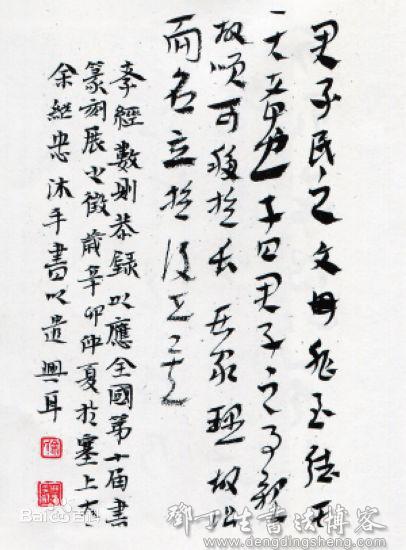 君子民之父母非至德其
大 也子曰君子之事親
故順可移於長居家理故治
而名立於後世矣
孝經數則恭錄以應全國第十屆書
篆刻展之徵歲辛卯仲夏於塞上
余繼忠沐手書以遣興耳
Bai百科
鄧丁生書法博客
www.dengdingsheng.com